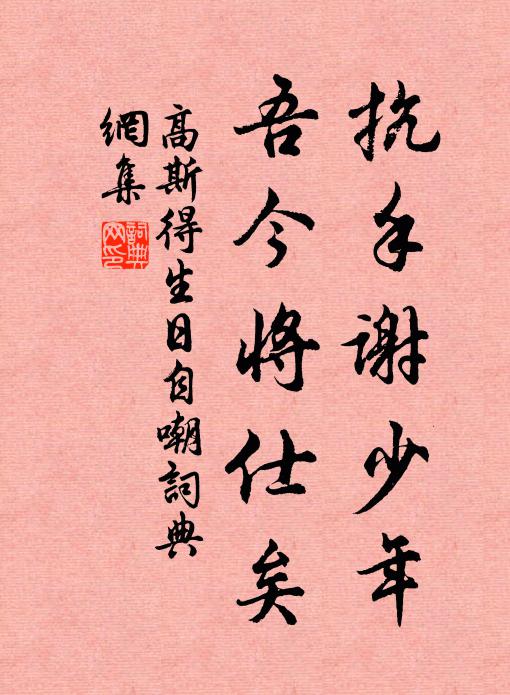 抗手謝少年
吾今將仕矣
高斯得生日自嘲詞典
網集
詞典
网印